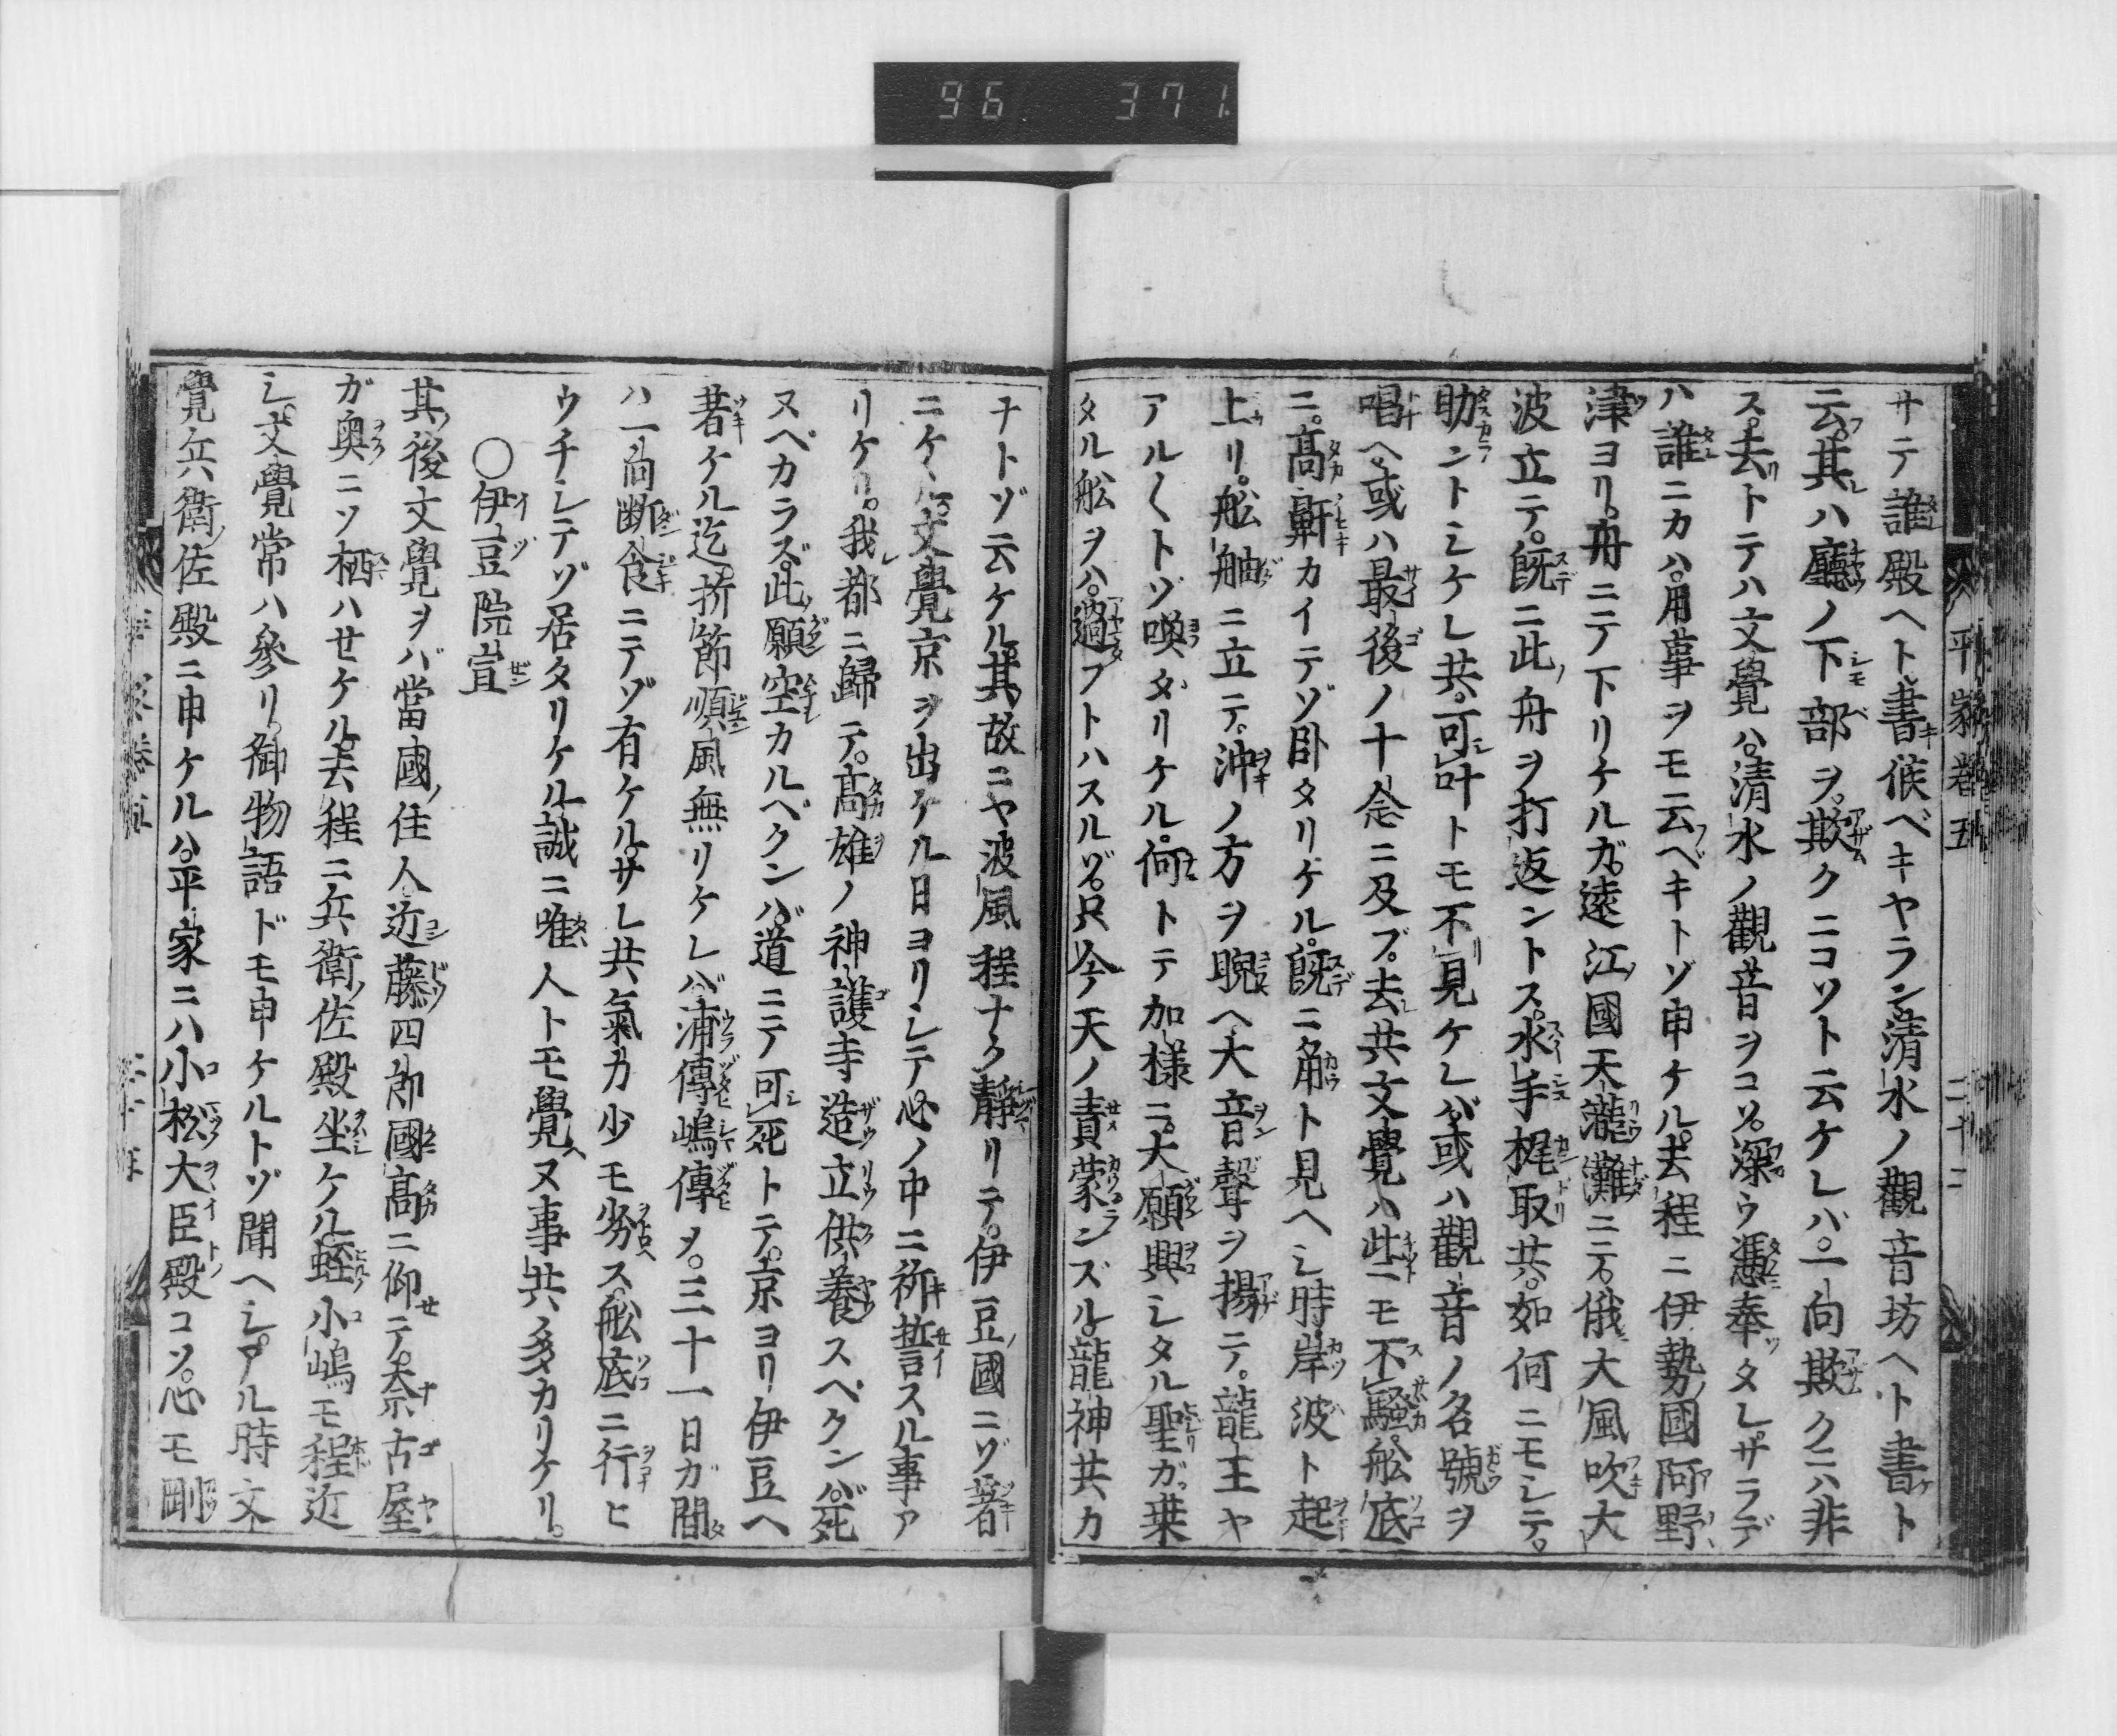 96 371
平家巻五 二十二
サテ誰殿ヘト書候ベキヤラン清水ノ觀音坊ヘト書ト
云其ハ廳ノ下部ヲ欺クニコソト云ケレバ。一向欺クニハ非
ス。去トテハ文覺ハ。清水ノ觀音ヲコソ。深ウ憑奉タレ。サラデ
ハ誰ニカハ。用事ヲモ云ベキトゾ申ケル。去程ニ伊勢國阿野
津ヨリ。舟ニテ下リケルガ。遠江國天瀧灘ニテ。俄大風吹大
波立テ。既ニ此舟ヲ打返ントス。水手梶取共。如何ニモシテ。
助ントシケレ共。可叶トモ不見ケレバ。或ハ觀音ノ名號ヲ
唱ヘ。或ハ最後ノ十念ニ及ブ。去共文覺ハ些モ不騷。舩底
ニ。髙鼾カイテゾ卧タリケル。既ニ角ト見ヘシ時。岸波ト起
上リ。舩舳ニ立テ。沖ノ方ヲ睨ヘ大音聲ヲ揚ニテ。龍王ヤ
アル〱トゾ喚ダリケル。何トテ加樣ニ。大願興シタル聖ガ。葉
タル舩ヲハ。過フトハスルゾ。只今天ノ責蒙ンズル。龍神共カ
ナトゾ云ケル。其故ニヤ波風程ナク靜リテ。伊豆國ニゾ著
ニケル。文覺京ヲ出ケル日ヨリシテ。心ノ中ニ祈誓スル事ア
リケリ。我都ニ歸テ。髙雄ノ神護寺造立供養スベクンバ。死
ヌベカラズ。此願空カルベクンバ。道ニテ可死トテ。京ヨリ伊豆ヘ
著ケル迄。折節順風無リケレバ。浦傳嶋傳ヲ。三十一日ガ間
ハ一向斷食ニテゾ有ケル。サレ共氣力少モ劣ス。舩底ニ行ヒ
ウチシテゾ居タリケル。誠ニ唯人トモ覺ヌ事共ノ多カリケリ。
〇伊豆院宣
其後文覺ヲバ當國ノ住人近藤四郎國髙ニ仰テ。奈古屋
ガ奥ニソ栖ハセケル。去程ニ兵衛佐殿坐ケル。蛭小嶋モ程近
シ。文覺常ハ參リ。御物語ドモ申ケルトゾ聞ヘシ。アル時文
覺兵衛佐殿ニ申ケルハ。平家ニハ小松大臣殿コソ。心モ剛